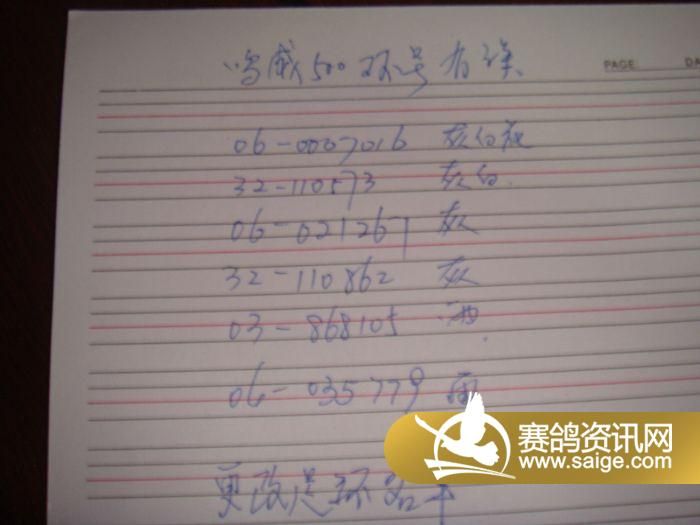 500环号有误
PAGE
06-0007016 灰白花
32-110573 灰白.
06-021267 灰
32-110862 灰
03-868105
06-035779 雨
更改足环
赛鸽资讯网
www.saige.com